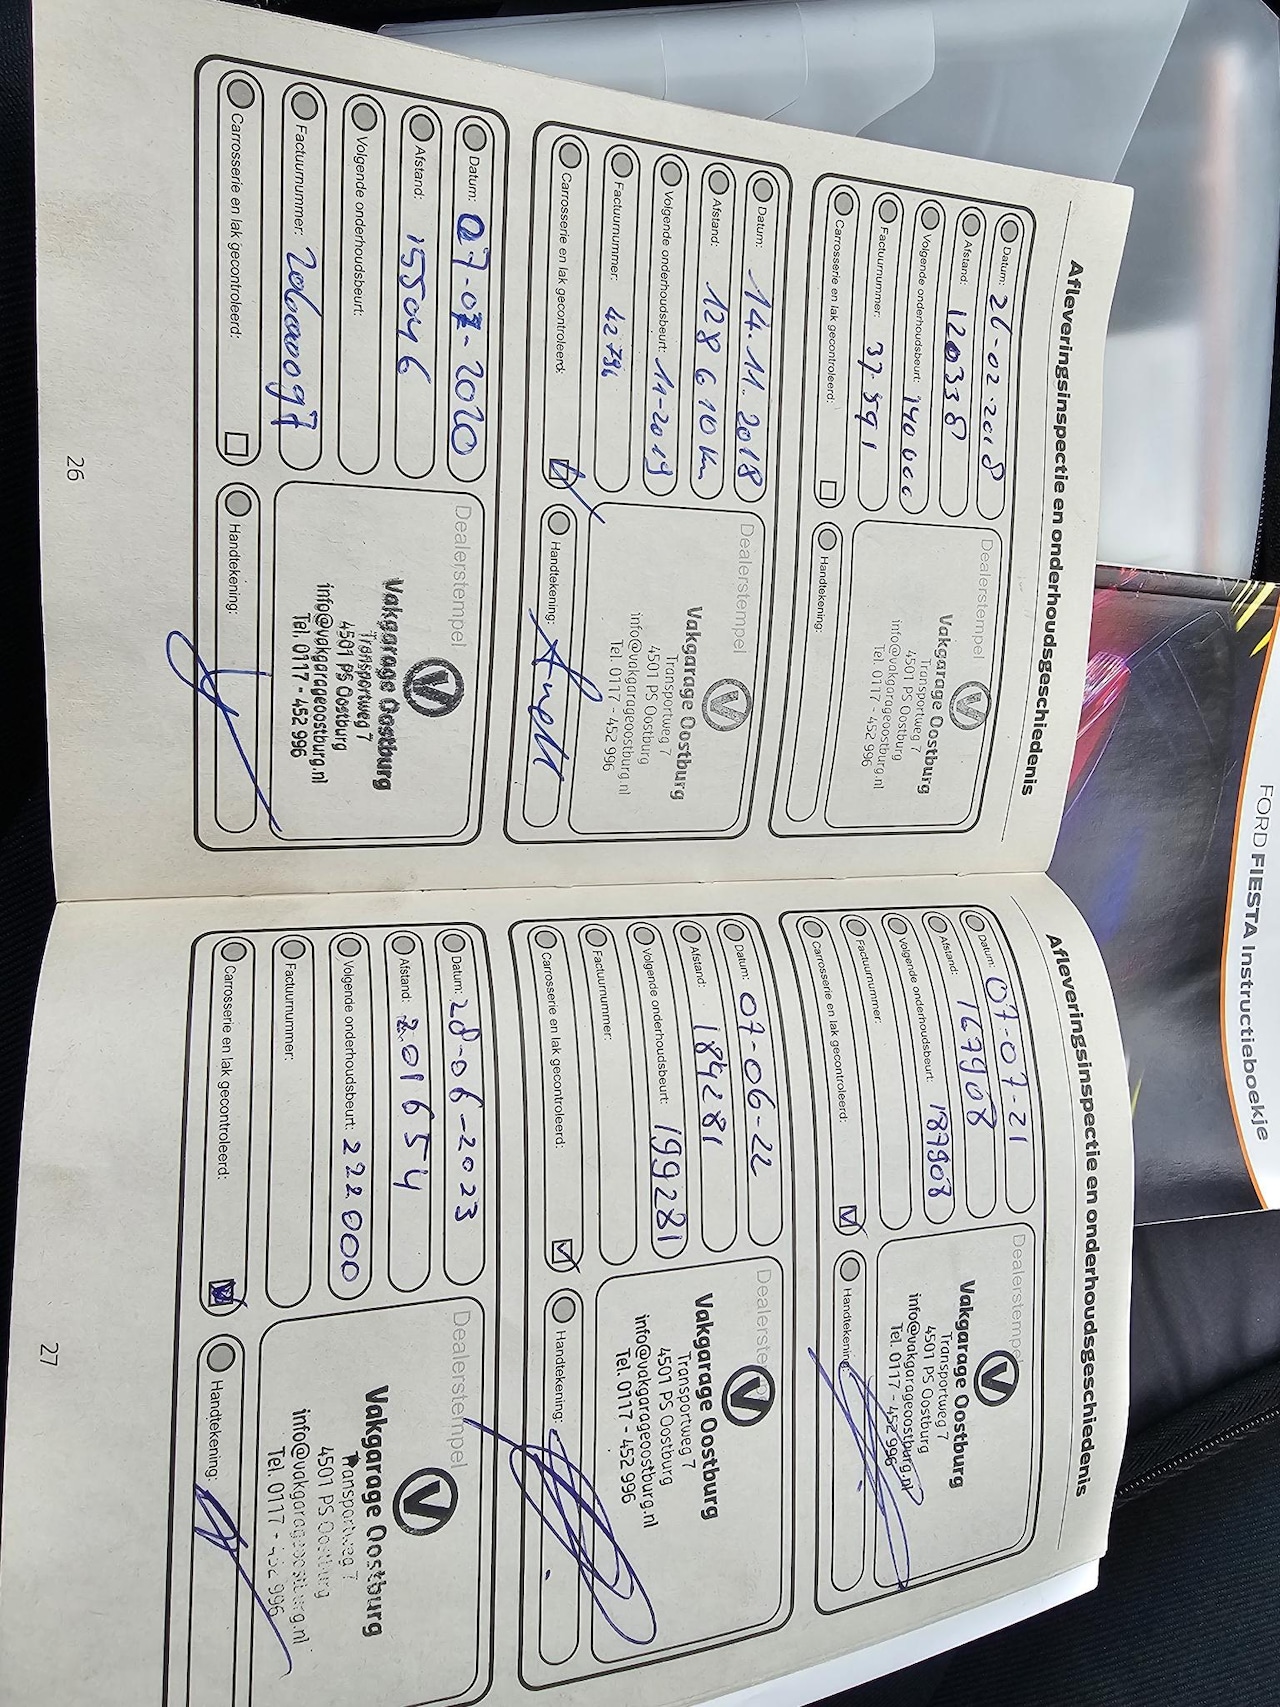 Afleveringsinspectie en onderhoudsgeschiedenis
Datum: 26-02-2018
Afstand: 120338
Volgende onderhoudsbeurt: 140000
Factuurnummer: 37.591
Carrosserie en lak gecontroleerd:
Dealerstempel
Vakgarage Oostburg
Transportweg 7
4501 PS Oostburg
info@vakgarageoostburg.nl
Tel. 0117 - 452 996
Handtekening:
Datum: 14.11.2018
Afstand: 128610 km
Volgende onderhoudsbeurt: 11-2019
Factuurnummer: 42796
Carrosserie en lak gecontroleerd:
Dealerstempel
Vakgarage Oostburg
Transportweg 7
4501 PS Oostburg
info@vakgarageoostburg.nl
Tel. 0117 - 452 996
Handtekening:
Datum: 07-07-2020
Afstand: 155046
Volgende onderhoudsbeurt:
Factuurnummer:
Carrosserie en lak gecontroleerd:
Dealerstempel
Vakgarage Oostburg
Transportweg 7
4501 PS Oostburg
info@vakgarageoostburg.nl
Tel. 0117 - 452 996
Handtekening:
26
Afleveringsinspectie en onderhoudsgeschiedenis
Datum: 07-07-21
Afstand: 167908
Volgende onderhoudsbeurt: 187908
Factuurnummer:
Carrosserie en lak gecontroleerd:
Dealerstempel
Vakgarage Oostburg
Transportweg 7
4501 PS Oostburg
info@vakgarageoostburg.nl
Tel. 0117 - 452 996
Handtekening:
Datum: 07-06-22
Afstand: 184281
Volgende onderhoudsbeurt: 199281
Factuurnummer:
Carrosserie en lak gecontroleerd:
Dealerstempel
Vakgarage Oostburg
Transportweg 7
4501 PS Oostburg
info@vakgarageoostburg.nl
Tel. 0117 - 452 996
Handtekening:
Datum: 28-06-2023
Afstand: 201654
Volgende onderhoudsbeurt: 222000
Factuurnummer:
Carrosserie en lak gecontroleerd:
Dealerstempel
Vakgarage Oostburg
Transportweg 7
4501 PS Oostburg
info@vakgarageoostburg.nl
Tel. 0117 - 452 996
Handtekening:
27
FORD FIESTA Instructieboekje